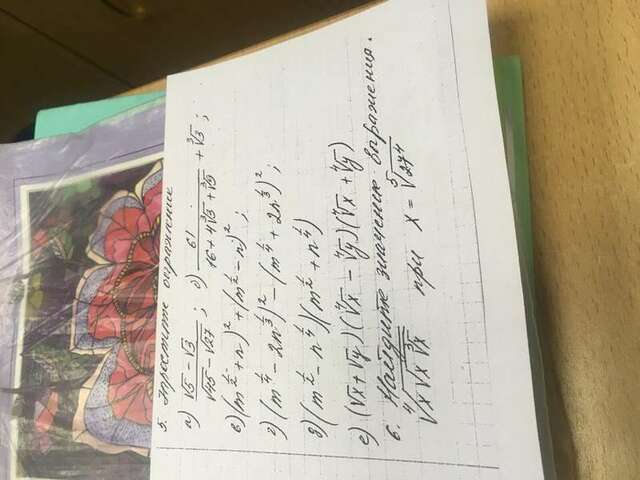 5. Упростите выражение
а) (√5 − √3)/(√45 − √27); б) 61/(16 + 4∛3 + ∛9) + ∛3;
в) (m^½ + n)² + (m^½ − n)²;
г) (m^¼ − 2n^⅓)² − (m^¼ + 2n^⅓)²;
д) (m^½ − n^¼)(m^½ + n^¼)
е) (√x + √y)(∜x − ∜y)(∜x + ∜y)
6. Найдите значение выражения.
∜(x√(x∛x)) при x = ⁵√(27⁴)